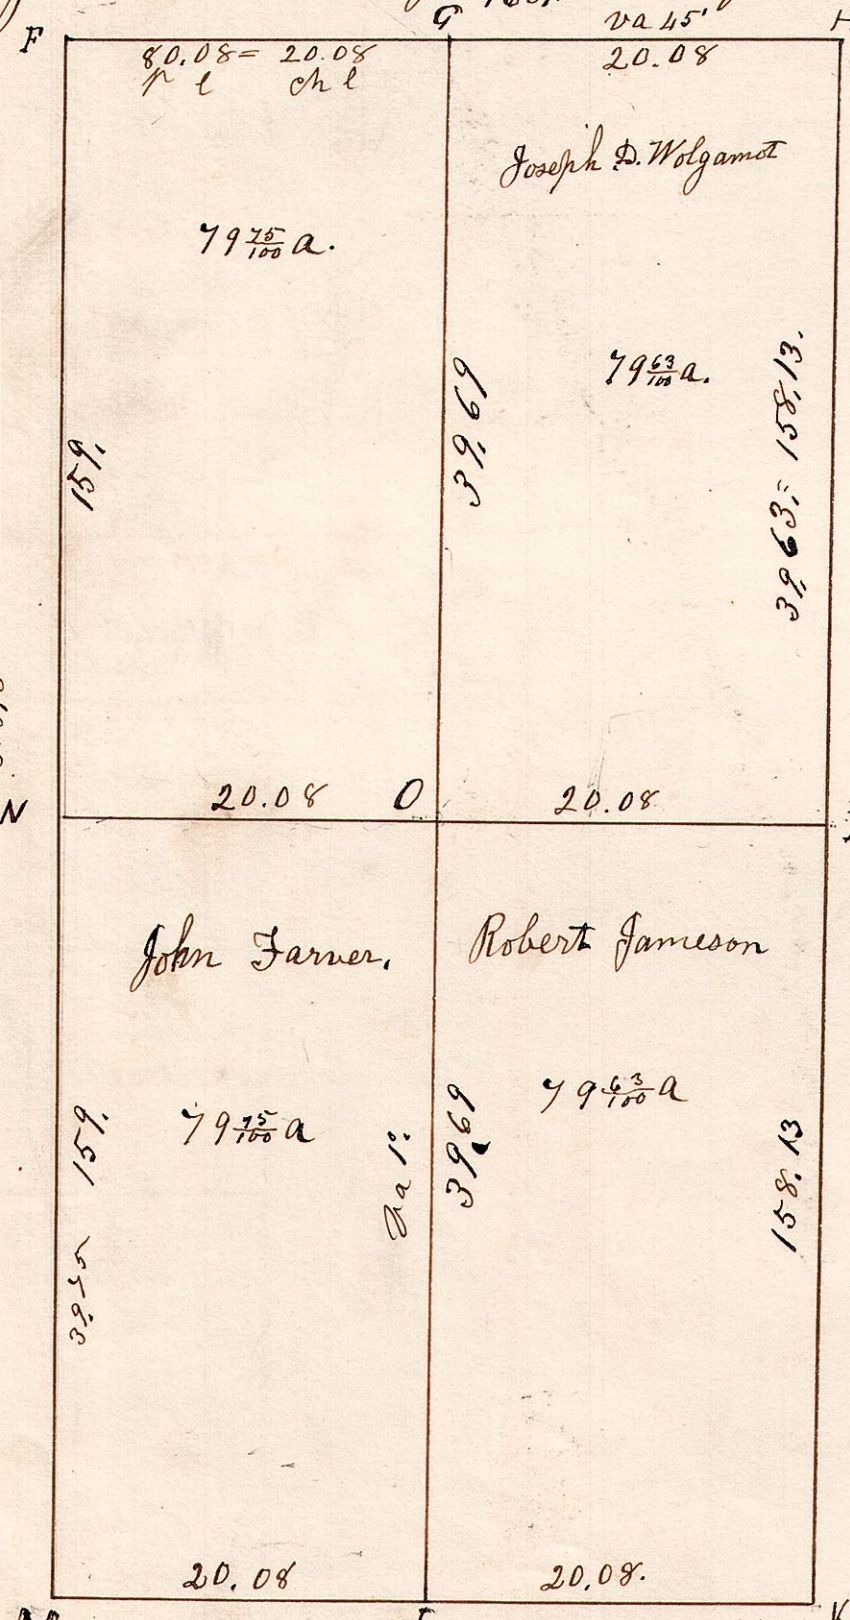 G va 45'
F
80.08 = 20.08
p l ch l
20.08
Joseph D. Wolgamot
79 75/100 a.
79 63/100 a.
159.
39,69
39,63, = 158,13.
20.08 O
20.08
N
John Farver.
Robert Jameson
79 75/100 a
79 63/100 a
159.
39.75
va 1°.
39,69
158.13
20.08
20.08.